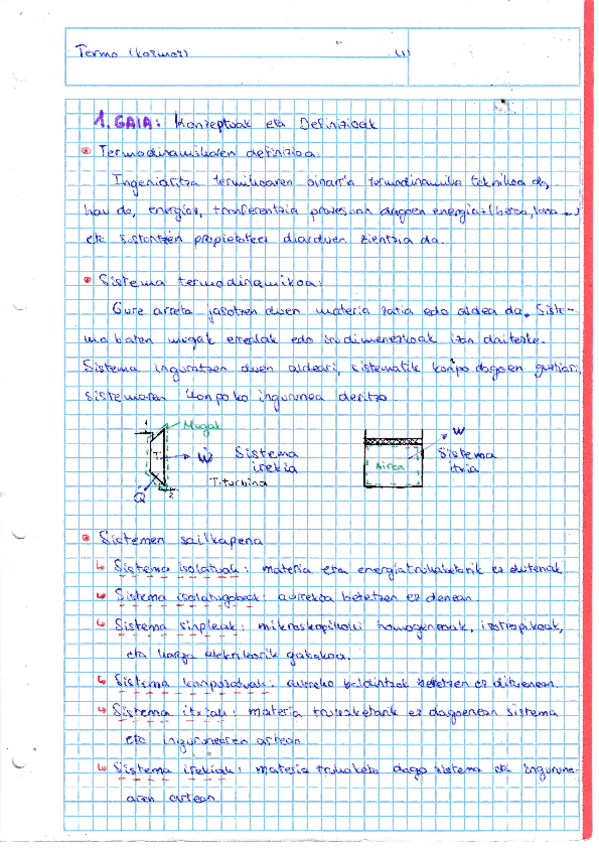 Termo (kosmos) (1)
1. GAIA: Kontzeptuak eta Definizioak
Termodinamikaren definizioa:
Ingeniaritza termikoaren oinarria termodinamika teknikoa da,
hau da, energiaz, transferentzia prozesuan dagoen energiaz (beroa, lana ...)
eta sustantzien propietateez diarduen zientzia da.
Sistema termodinamikoa:
Gure arreta jasotzen duen materia zatia edo aldea da. Siste-
ma baten mugak errealak edo irudimenezkoak izan daitezke.
Sistema inguratzen duen aldeari, sistematik kanpo dagoen guztiari,
sistemaren kanpoko ingurunea deritzo.
Mugak
1
T
Ẇ
Q̇
2
Sistema
irekia
T: turbina
Airea
W
Sistema
itxia
Sistemen sailkapena
Sistema isolatuak: materia eta energia trukaketarik ez dutenak
Sistema isolatugabeak: aurrekoa betetzen ez denean.
Sistema sinpleak: mikroskopikoki homogeneoak, isotropikoak,
eta karga elektrikorik gabekoa.
Sistema konposatuak: aurreko baldintzak betetzen ez direnean.
Sistema itxiak: materia trukaketarik ez dagoenean sistema
eta ingurunearen artean
Sistema irekiak: materia trukaketa dago sistema eta ingurune-
aren artean